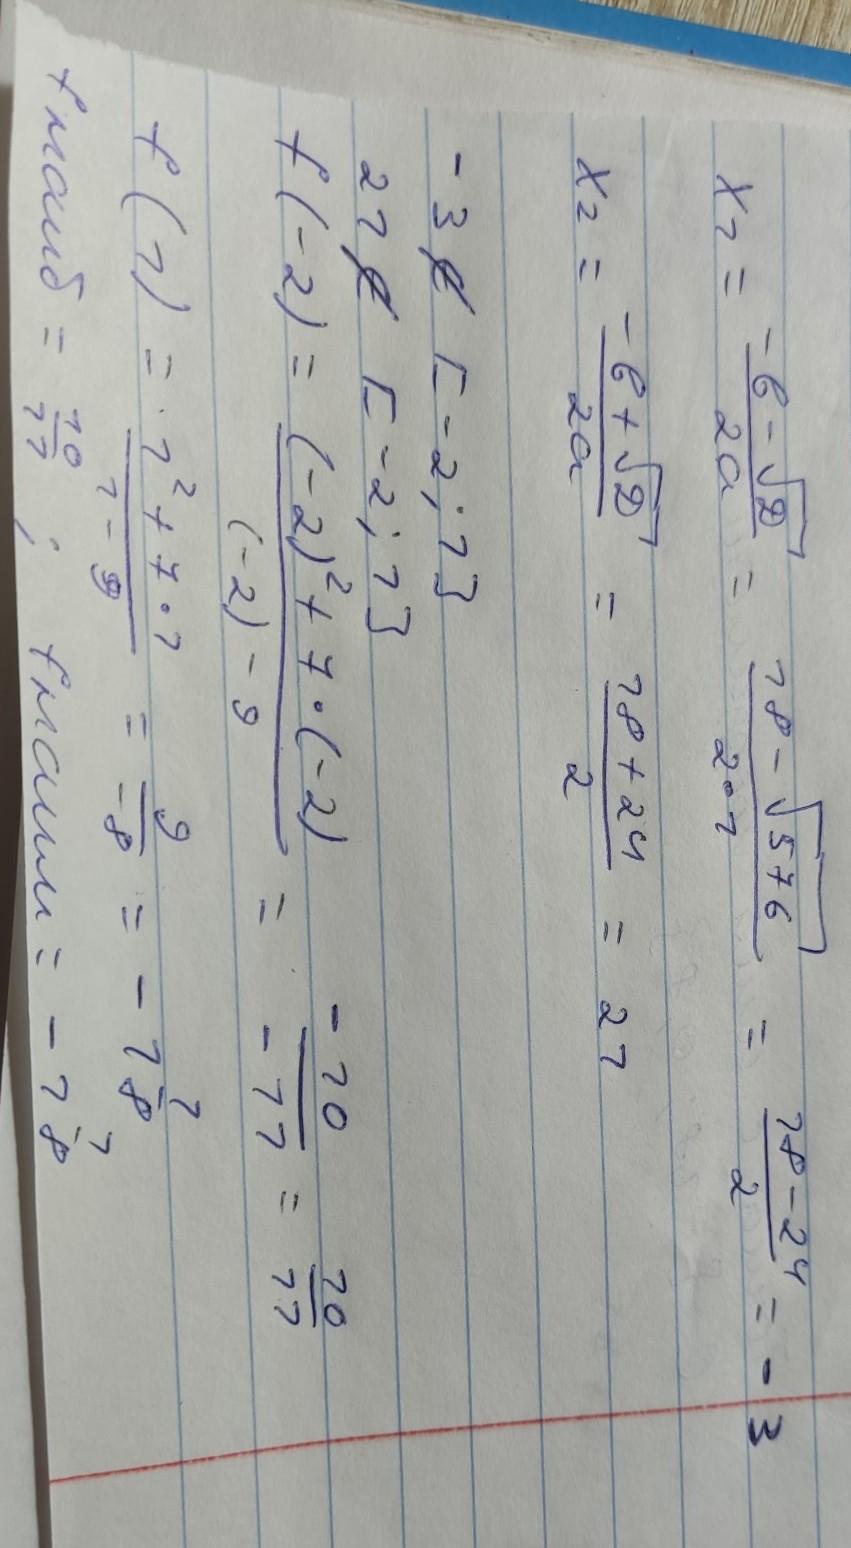 x₁ = (-b - √D)/(2a) = (18 - √576)/(2·1) = (18 - 24)/2 = -3
x₂ = (-b + √D)/(2a) = (18 + 24)/2 = 21
-3 ∉ [-2; 1]
21 ∉ [-2; 1]
f(-2) = ((-2)² + 7·(-2))/((-2) - 9) = (-10)/(-11) = 10/11
f(1) = (1² + 7·1)/(1 - 9) = 9/(-8) = -1 1/8
fнаиб = 10/11 ; fнаим = -1 1/8